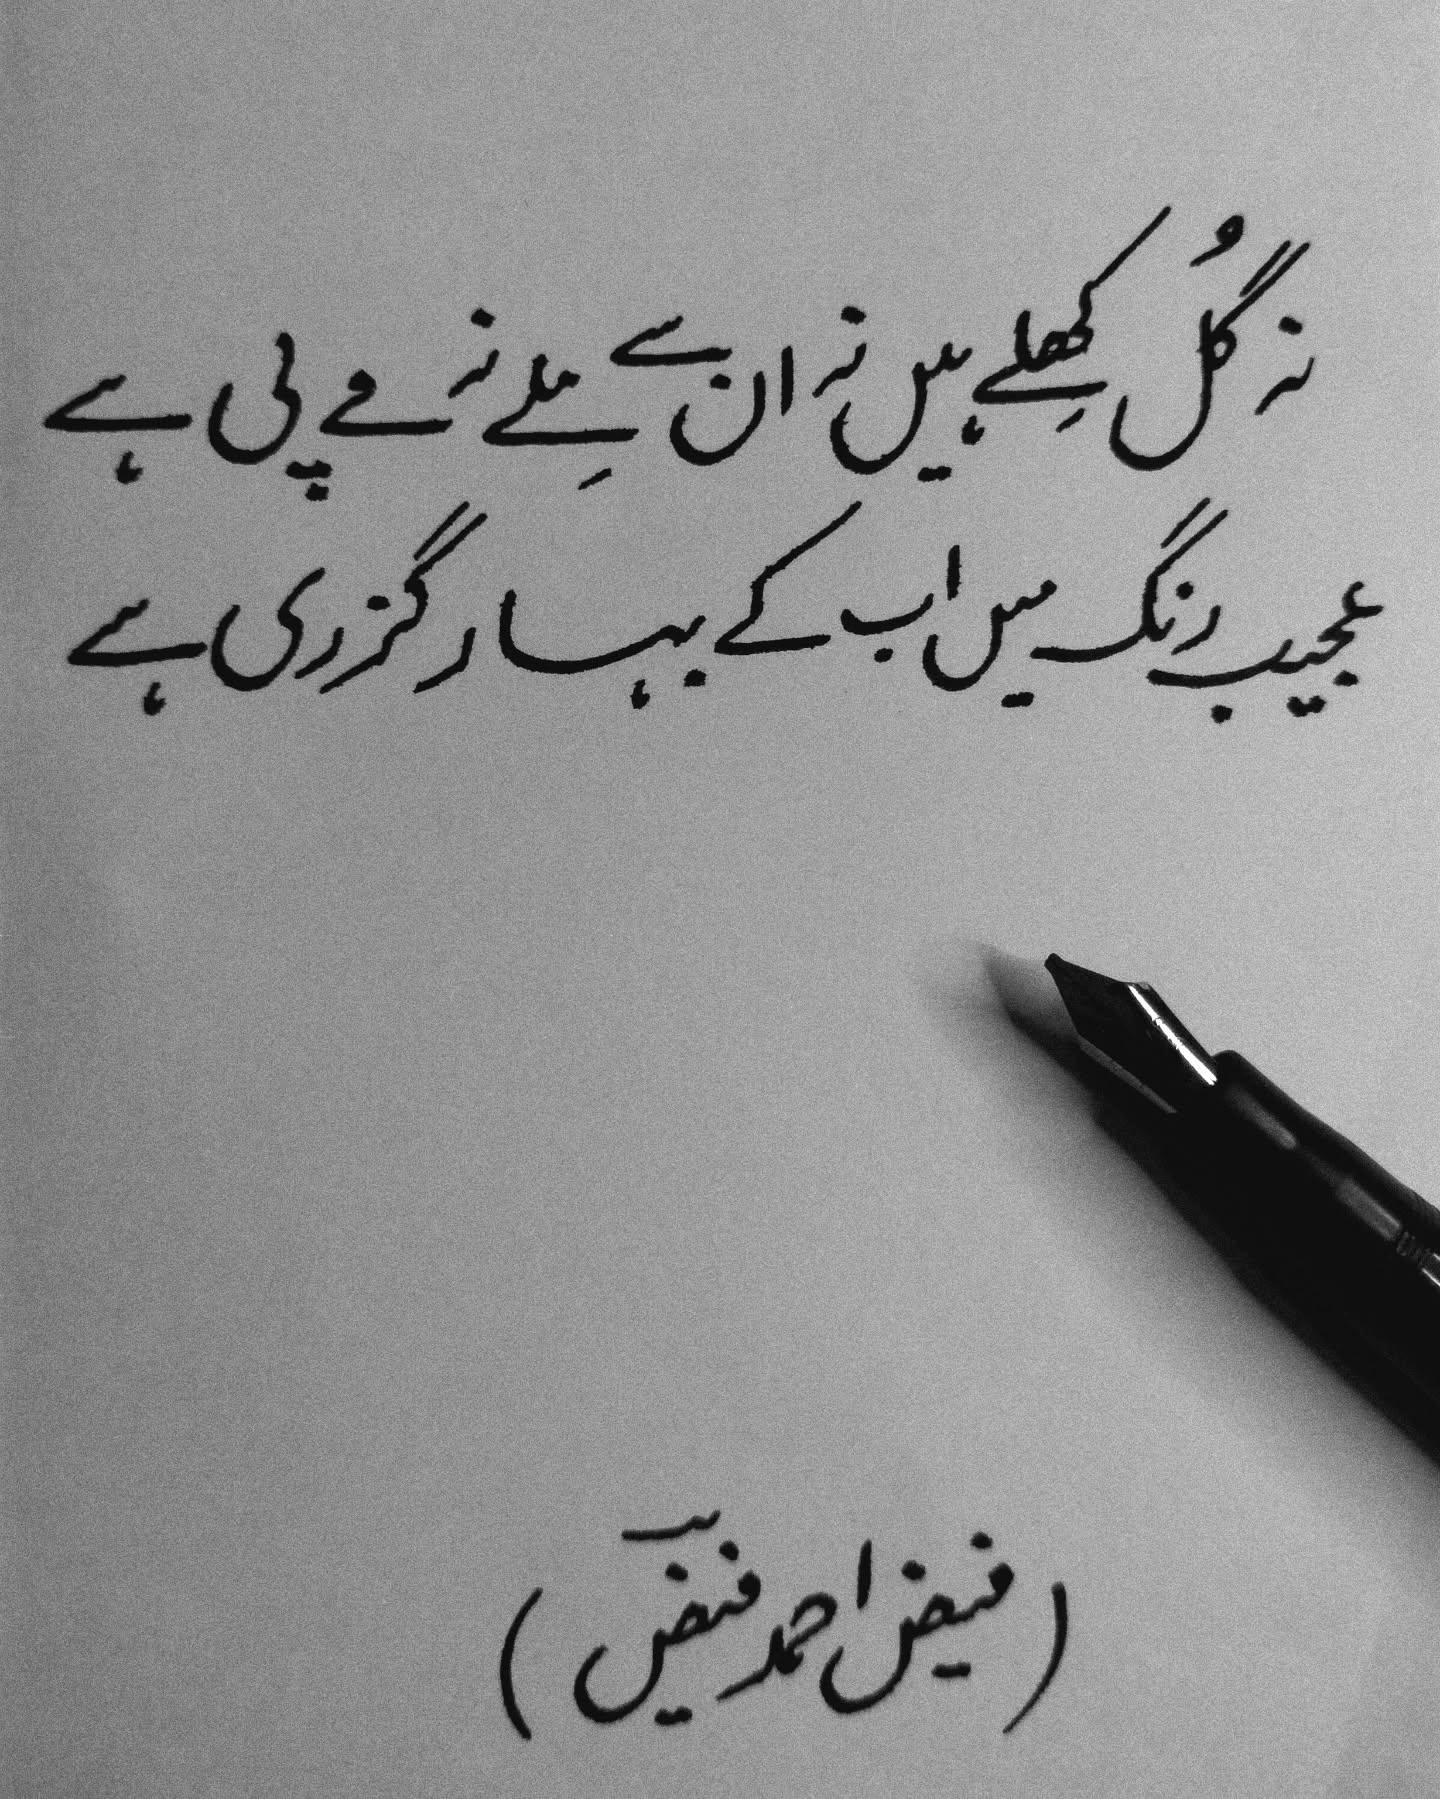 نہ گُل کھِلے ہیں نہ ان سے مِلے نہ مے پی ہے
عجیب رنگ میں اب کے بہار گزری ہے
(فیض احمد فیضؔ)